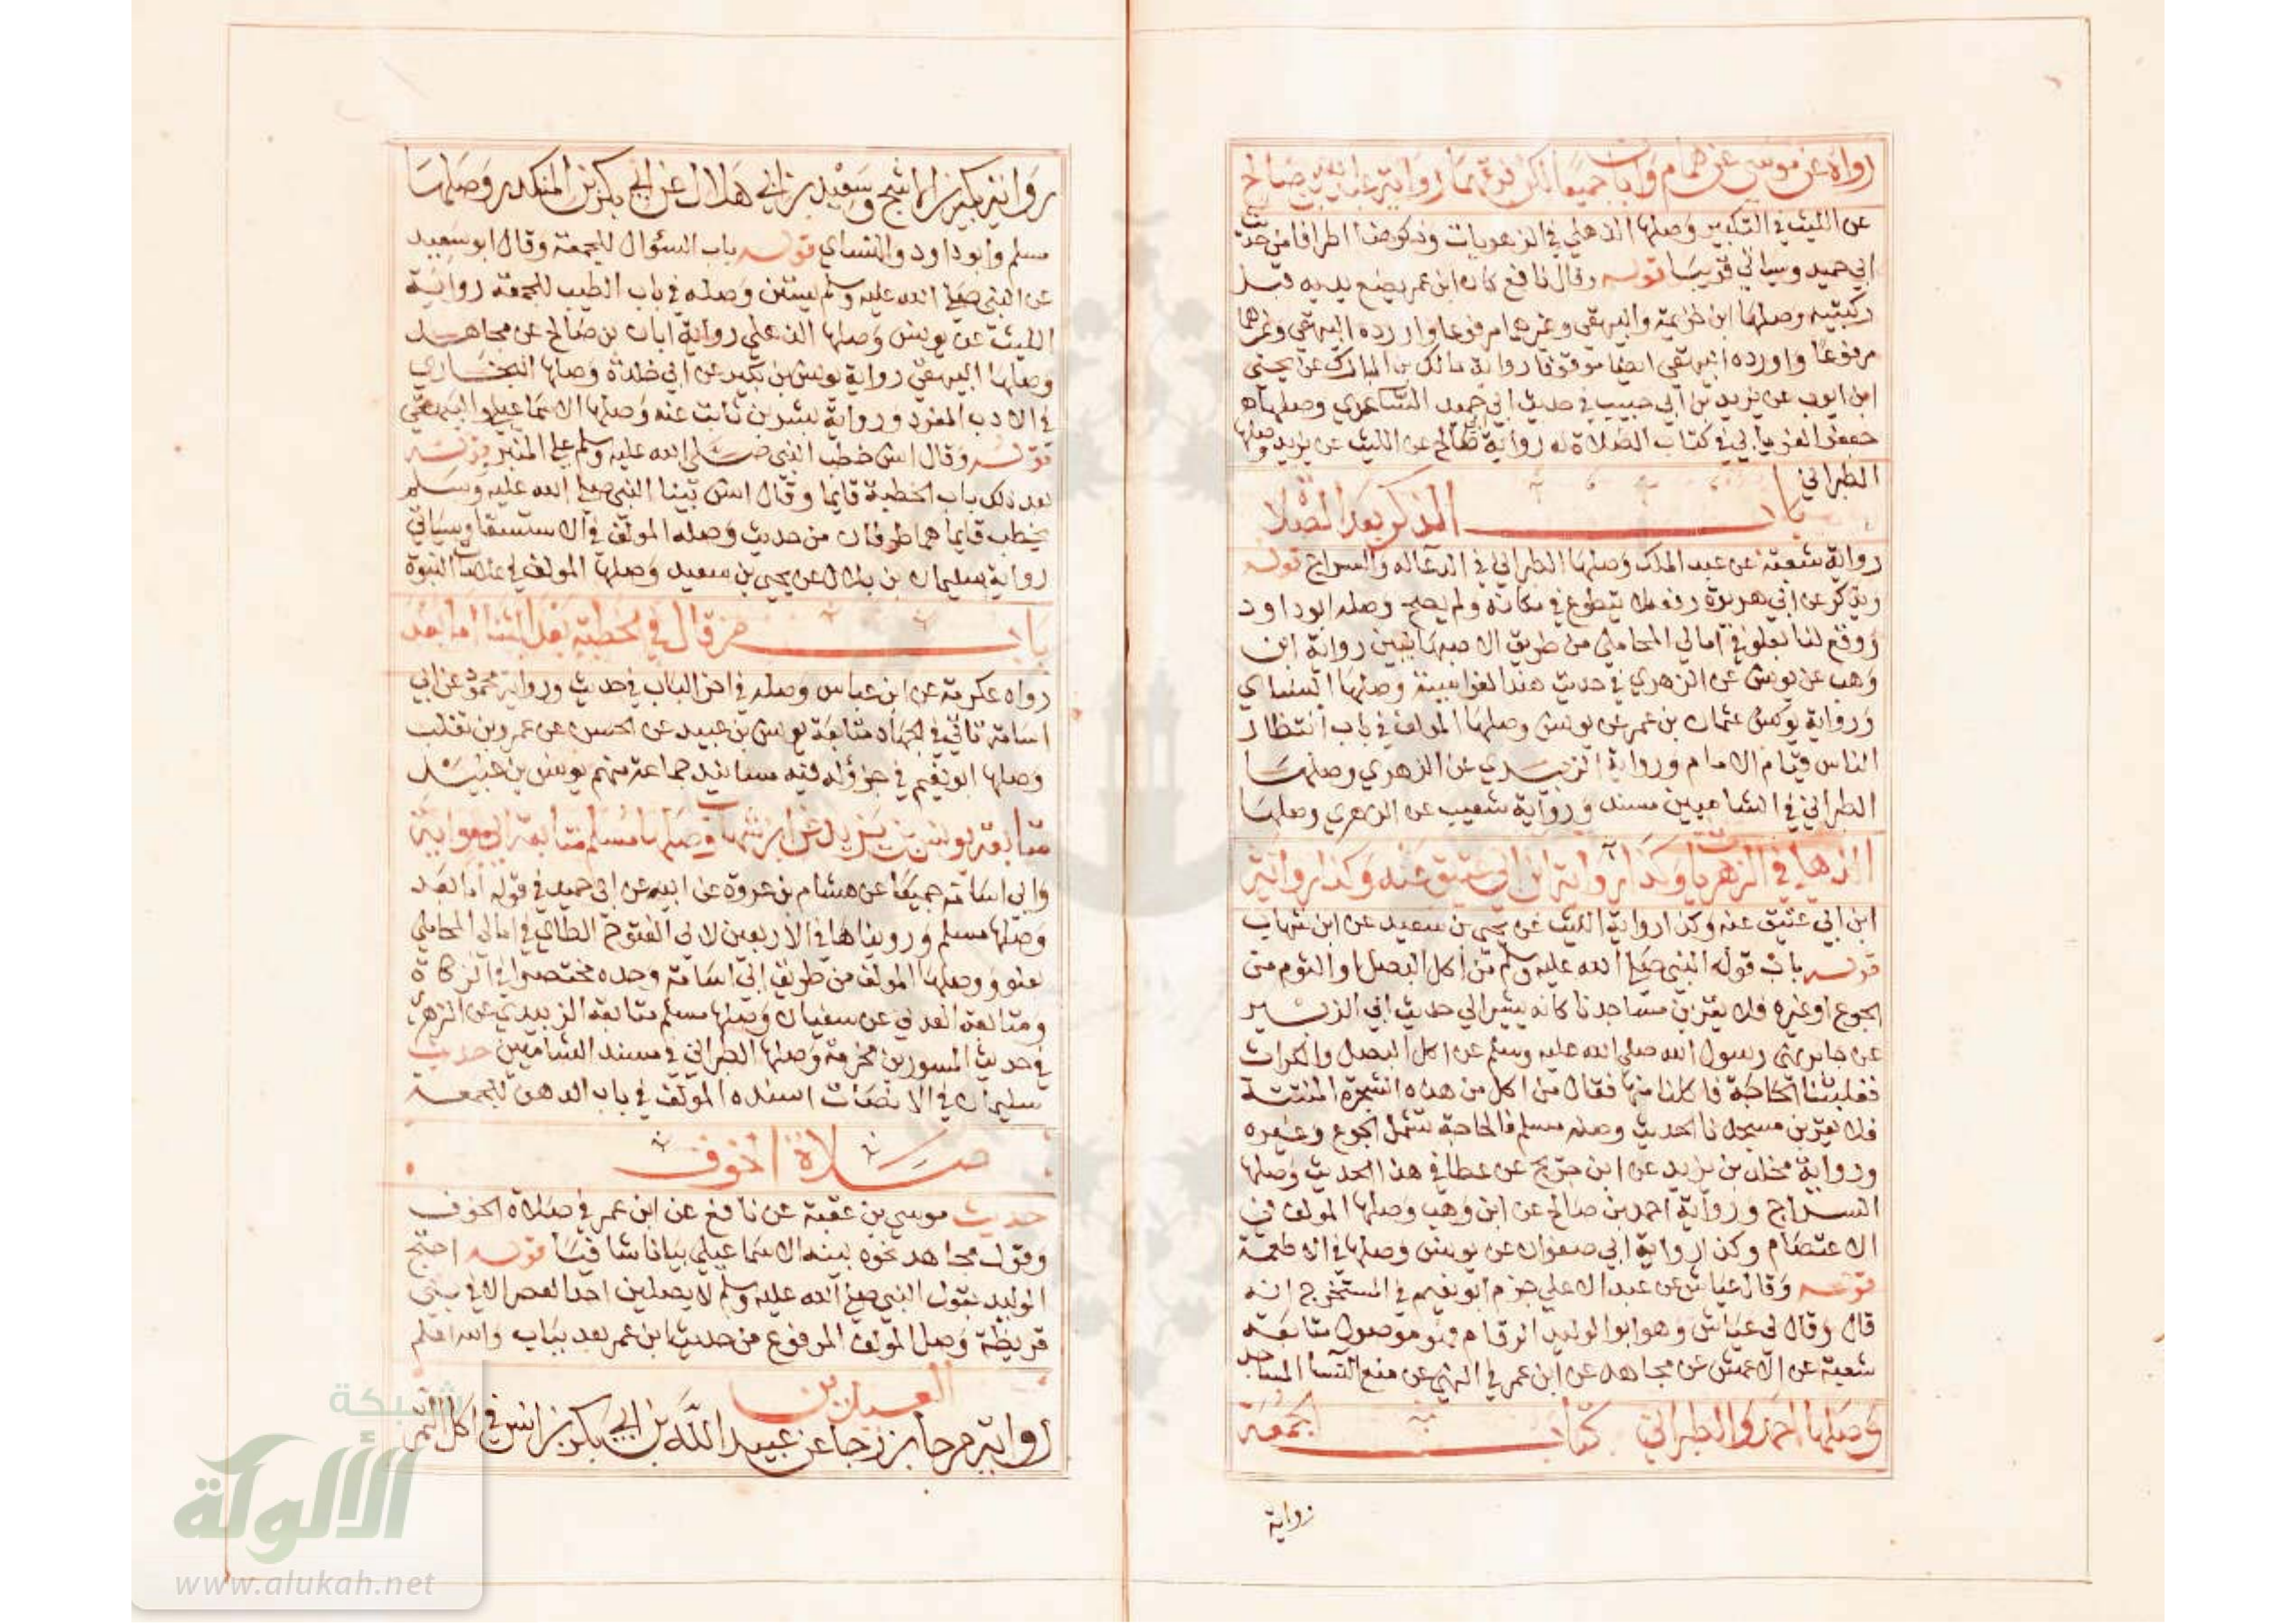 رواه عن موسى عن همام وابان جميعا لكن فرقهما رواية عبد الله بن صالح
عن الليث في التكبير وصلها الذهلي في الزهريات وذكر هذا اطرافا من حديث
ابي حميد وسياتي قريبا قوله وقال نافع كان ابن عمر يضع يديه قبل
ركبتيه وصلها ابن خزيمة والبيهقي وغيرهما مرفوعا واورده البيهقي وغيرهما
مرفوعا واورده البيهقي ايضا موقوفا رواية مالك بن المبارك عن يحيى
ابن ايوب عن يزيد بن ابي حبيب في حديث ابي حميد الساعدي وصلها
جعفر الفريابي في كتاب الصلاة له رواية صالح عن الليث عن يزيد وصلها
الطبراني
باب الذكر بعد الصلاة
رواية شعبة عن عبد الملك وصلها الطبراني في الدعا له والسراج قوله
ويذكر عن ابي هريرة رفعه لا يتطوع في مكانه ولم يصح وصله ابو داود
ووقع لنا بعلو في امالي المحاملي من طريق الاصبهانيين رواية ابن
وهب عن يونس عن الزهري في حديث هند الفراسية وصلها النساي
ورواية يونس عثمان بن عمر عن يونس وصلها المولف في باب انتظار
الناس قيام الامام ورواية الزبيدي عن الزهري وصلها
الطبراني في الشاميين مسند ورواية شعيب عن الزهري وصلها
الذهلي في الزهريات وكذا رواية ابن ابي عتيق عنه وكذا رواية
ابن ابي عتيق عنه وكذا رواية الليث عن يحيى بن سعيد عن ابن شهاب
قوله باب قول النبي صلى الله عليه وسلم من اكل البصل او الثوم من
الجوع او غيره فلا يقربن مساجدنا كانه يشير الى حديث ابي الزبير
عن جابر نهى رسول الله صلى الله عليه وسلم عن اكل البصل والكراث
فغلبتنا الحاجة فاكلنا منها فقال من اكل من هذه الشجرة المنتنة
فلا يقربن مسجدنا الحديث وصله مسلم فالحاجة تشمل الجوع وغيره
ورواية مخلد بن يزيد عن ابن جريج عن عطا في هذا الحديث وصلها
السراج ورواية احمد بن صالح عن ابن وهب وصلها المولف في
الاعتصام وكذا رواية ابي صفوان عن يونس وصلها في الاطعمة
قوله وقال عياش عن عبد الاعلى جزم ابو نعيم في المستخرج انه
قال وقال لي عياش وهو ابو الوليد الرقام فهو موصول متابعة
شعبة عن الاعمش عن مجاهد عن ابن عمر في النهي عن منع النسا المساجد
وصلها احمد والطبراني كتاب الجمعة
رواية
رواية بكير بن الاشج وسعيد بن ابي هلال عن ابي بكر بن المنكدر وصلها
مسلم وابو داود والنساي قوله باب السؤال للجمعة وقال ابو سعيد
عن النبي صلى الله عليه وسلم يستن وصله في باب الطيب للجمعة رواية
الليث عن يونس وصلها الذهلي رواية ابان بن صالح عن مجاهد
وصلها البيهقي رواية يونس بن بكير عن ابي خلدة وصلها البخاري
في الادب المفرد ورواية بشر بن ثابت عنه وصلها الاسماعيلي والبيهقي
قوله وقال انس خطب النبي صلى الله عليه وسلم على المنبر قوله
بعد ذلك باب الخطبة قايما وقال انس بينا النبي صلى الله عليه وسلم
يخطب قايما هما طرفان من حديث وصله المولف في الاستسقا وسياتي
رواية سليمان بن بلال عن يحيى بن سعيد وصلها المولف في علامات النبوة
باب من قال في الخطبة بعد الثنا اما بعد
رواه عكرمة عن ابن عباس وصله في اخر الباب في حديث ورواية محمود عن ابي
اسامة تاتي في الجهاد متابعة يونس بن عبيد عن الحسن عن عمرو بن تغلب
وصلها ابو نعيم في جزؤ له فيه مسانيد جماعة منهم يونس بن عبيد
متابعة يونس بن يزيد عن ابن شهاب وصلها مسلم متابعة ابي معاوية
وابي اسامة جميعا عن هشام بن عروة عن ابيه عن ابي حميد في قوله اما بعد
وصلها مسلم ورويناها في الاربعين لابي الفتوح الطاي في امالي المحاملي
بعلو ووصلها المولف من طريق ابي اسامة وحده مختصرا في الزكاة
ومتابعة العدني عن سفيان وصلها مسلم متابعة الزبيدي عن الزهري
في حديث المسور بن مخرمة وصلها الطبراني في مسند الشاميين حديث
سليمان في الانصات اسنده المولف في باب الدهن للجمعة
صلاة الخوف
حديث موسى بن عقبة عن نافع عن ابن عمر في صلاة الخوف
وقول مجاهد نحوه بينه الاسماعيلي بيانا شافيا قوله احتج
الوليد بقول النبي صلى الله عليه وسلم لا يصلين احد العصر الا في بني
قريظة وصل المولف المرفوع من حديث ابن عمر بعد بباب والله اعلم
العيدين
رواية مرجا بن رجا عن عبيد الله بن ابي بكر بن انس في اكل التمر
شبكة
الألوكة
www.alukah.net